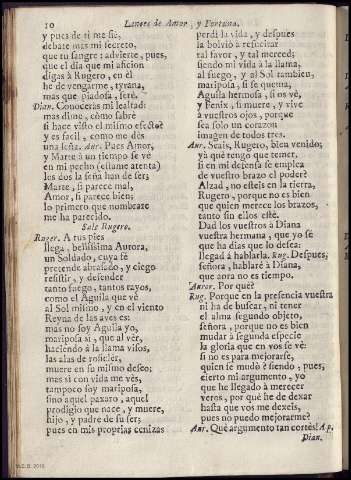 10 Lances de Amor, y Fortuna.
y pues de ti me fie,
debate mas mi secreto,
que tu sangre: advierte, pues,
que el dia que mi aficion
digas à Rugero, en èl
he de vengarme, tyrana,
mas que piadosa, serè.
Dian. Conoceràs mi lealtad:
mas dime, còmo sabrè
si hace visto el mismo efecto?
y es facil, como me dès
una seña. Aur. Pues Amor,
y Marte à un tiempo se vè
en mi pecho (estame atenta)
les dos la seña han de ser;
Marte, si parece mal,
Amor, si parece bien;
lo primero que nombrare
me ha parecido.
Sale Rugero.
Ruger. A tus pies
llega, bellissima Aurora,
un Soldado, cuya fè
pretende abrasado, y ciego
resistir, y defender
tanto fuego, tantos rayos,
como el Aguila que vè
al Sol mismo, y en el viento
Reyna de las aves es:
mas no soy Aguila yo,
mariposa sì, que al vèr,
haciendo à la llama visos,
las alas de rosiclèr,
muere en su mismo deseo;
mas si con vida me vès,
tampoco soy mariposa,
sino aquel paxaro, aquel
prodigio que nace, y muere,
hijo, y padre de su ser;
pues en mis proprias cenizas
perdì la vida, y despues
la bolviò à resucitar
tal favor, y tal merced;
siendo mi vida à la llama,
al fuego, y al Sol tambien,
mariposa, si se quema,
Aguila hermosa, si os vè,
y Fenix, si muere, y vive
à vuestros ojos, porque
sea solo un corazon
imagen de todos tres.
Aur. Seais, Rugero, bien venido;
yà què tengo que temer,
si en mi defensa se emplea
de vuestro brazo el poder?
Alzad, no esteis en la tierra,
Rugero, porque no es bien
que quien merece los brazos,
tanto sin ellos estè.
Dad los vuestros à Diana
vuestra hermana, que yo sè
que ha dias que lo desea:
llegad à hablarla. Rug. Despues,
señora, hablarè à Diana,
que aora no es tiempo.
Auror. Por què?
Rug. Porque en la presencia vuestra
ni ha de buscar, ni tener
el alma segundo objeto,
señora, porque no es bien
mudar à segunda especie
la gloria que en vos se vè:
si no es para mejorarse,
quien se mudò? siendo, pues,
cierto mi argumento, yo
que he llegado à merecer
veros, por què he de dexar
hasta que vos me dexeis,
pues no puedo mejorarme?
Aur. Què argumento tan cortès! Ap.
Dian.